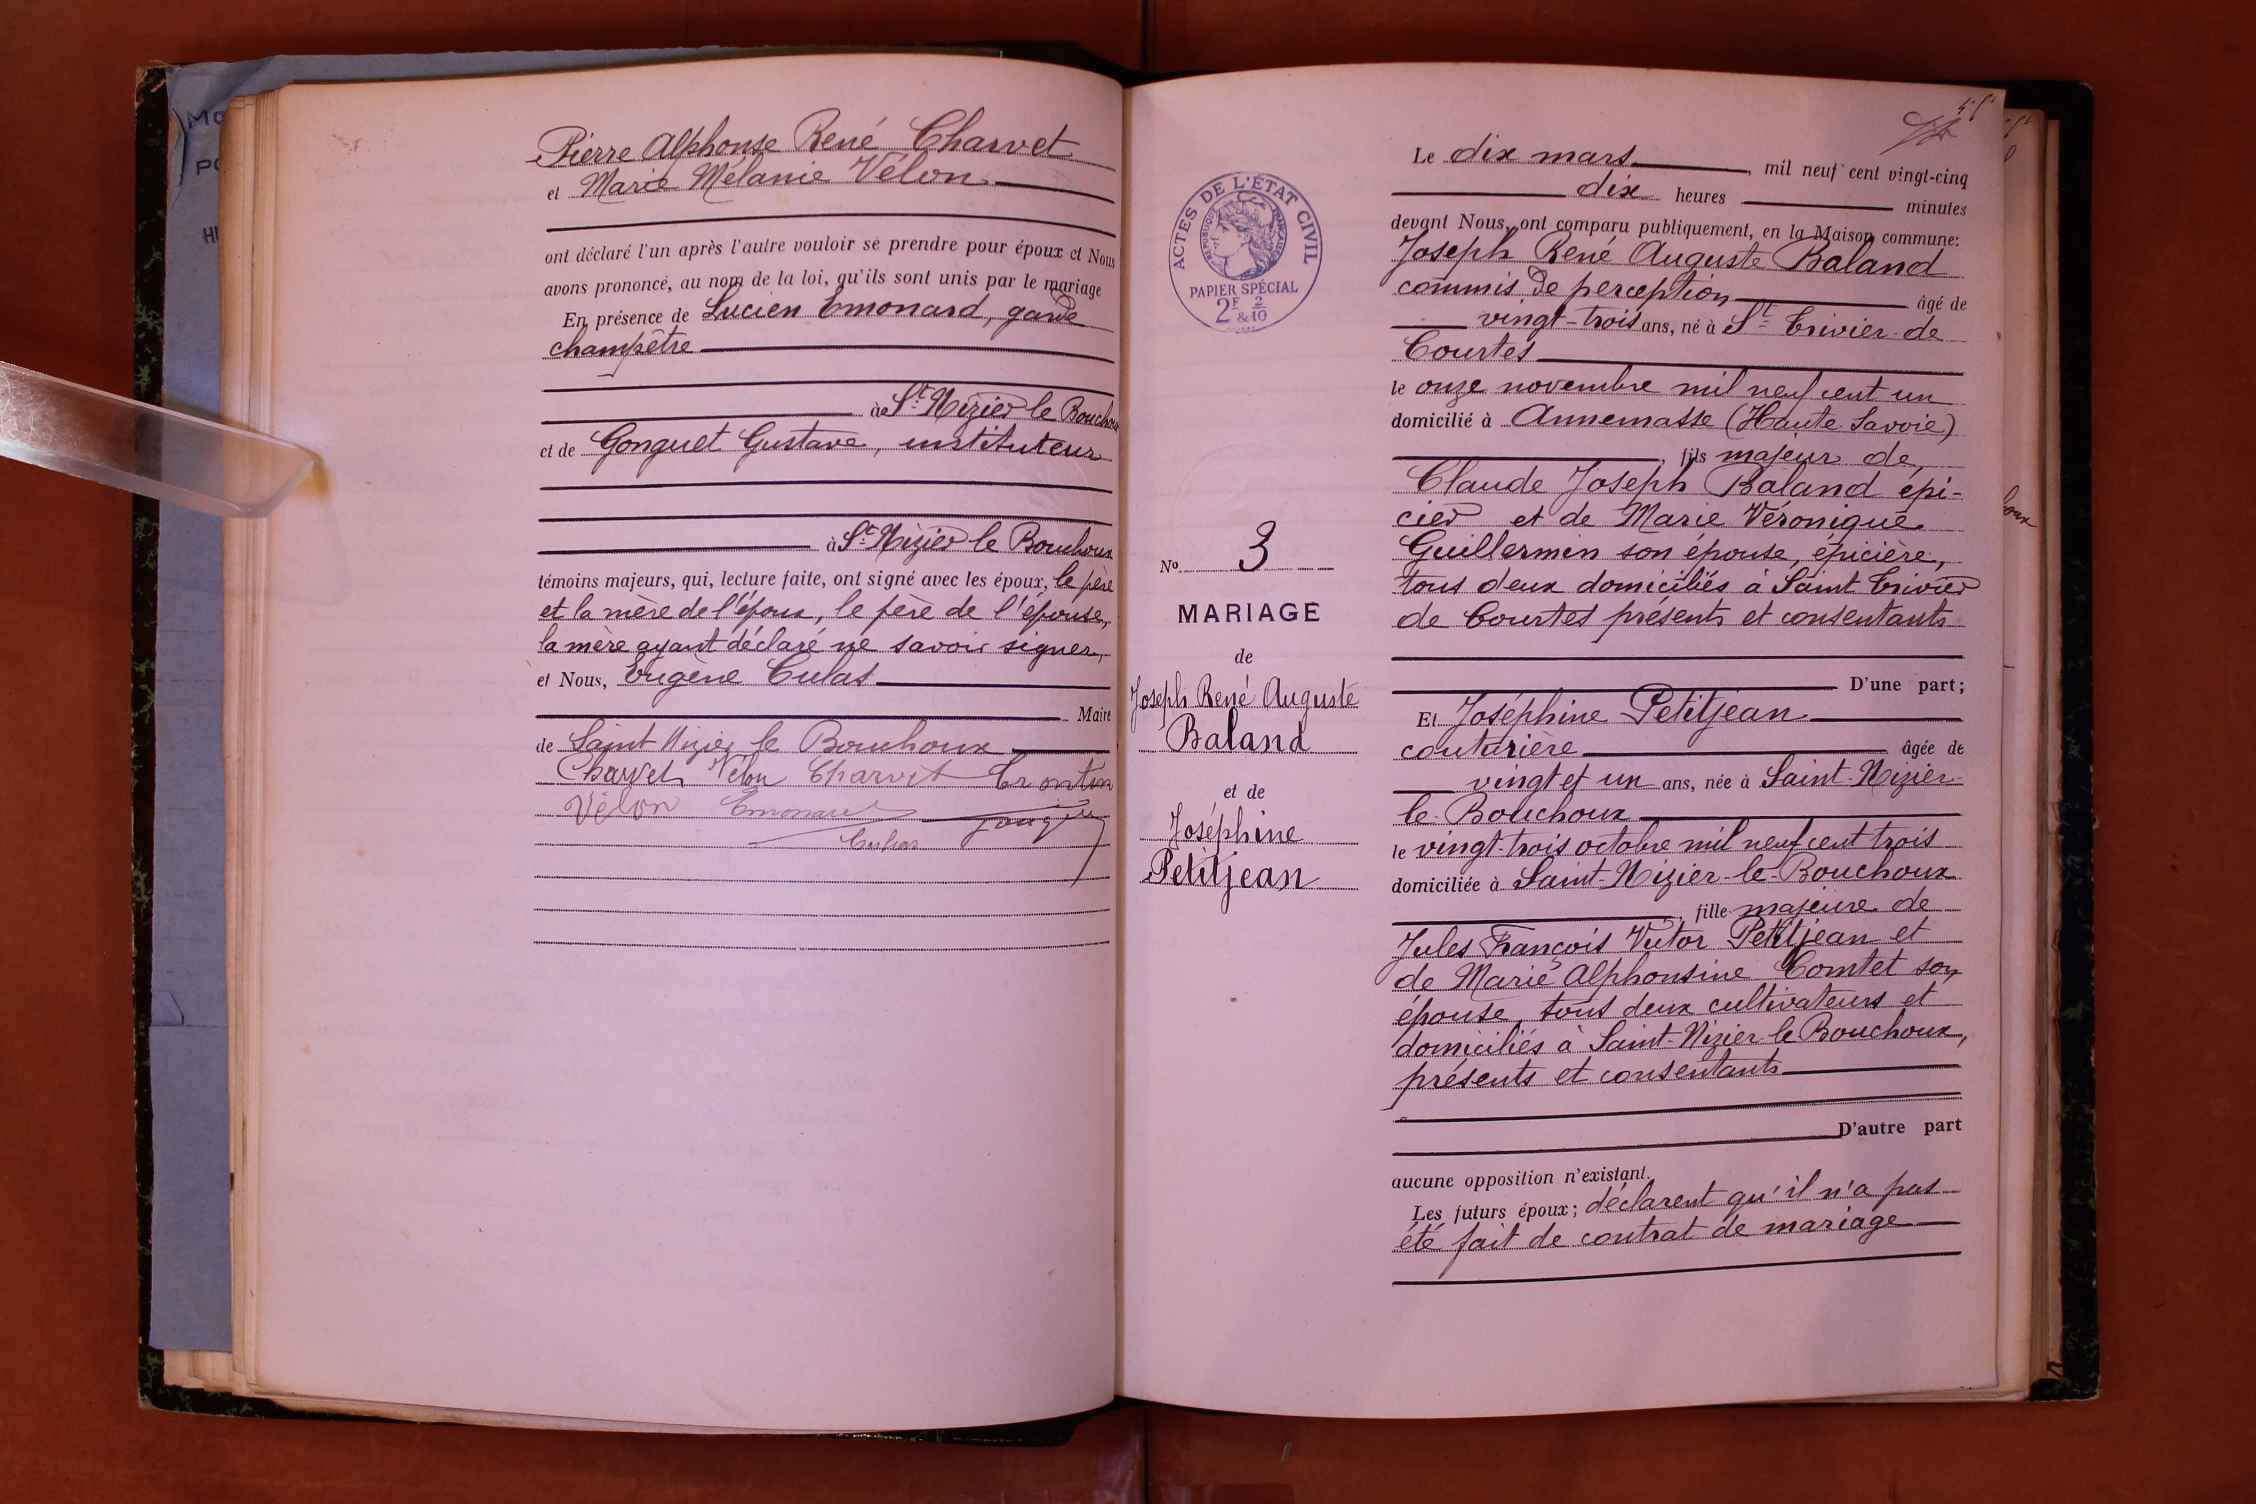 Pierre Alphonse René Charvet
et Marie Mélanie Vélon
ont déclaré l'un après l'autre vouloir se prendre pour époux et Nous
avons prononcé, au nom de la loi, qu'ils sont unis par le mariage
En présence de Lucien Emonard, garde
champêtre
à St Nizier le Bouchoux
et de Gonguet Gustave, instituteur
à St Nizier le Bouchoux
témoins majeurs, qui, lecture faite, ont signé avec les époux, le père
et la mère de l'époux, le père de l'épouse,
la mère ayant déclaré ne savoir signer,
et Nous, Eugène Culas
Maire
de Saint Nizier le Bouchoux
Charvet Vélon Charvet
Vélon Emonard
Culas
Le dix mars, mil neuf cent vingt-cinq
dix heures minutes
devant Nous, ont comparu publiquement, en la Maison commune:
Joseph René Auguste Baland
commis de perception âgé de
vingt-trois ans, né à St Trivier-de
Courtes
le onze novembre mil neuf cent un
domicilié à Annemasse (Haute Savoie)
, fils majeur de
Claude Joseph Baland épi-
cier et de Marie Véronique
Guillermin son épouse, épicière,
tous deux domiciliés à Saint Trivier
de Courtes présents et consentants
D'une part;
Et Joséphine Petitjean
couturière âgée de
vingt et un ans, née à Saint-Nizier-
le-Bouchoux
le vingt-trois octobre mil neuf cent trois
domiciliée à Saint-Nizier-le-Bouchoux
, fille majeure de
Jules François Victor Petitjean et
de Marie Alphonsine Comtet son
épouse, tous deux cultivateurs et
domiciliés à Saint-Nizier-le-Bouchoux,
présents et consentants
D'autre part
aucune opposition n'existant.
Les futurs époux; déclarent qu'il n'a pas
été fait de contrat de mariage
ACTES DE L'ÉTAT CIVIL
RÉPUBLIQUE FRANÇAISE
PAPIER SPÉCIAL
2F & 2/10
No 3
MARIAGE
de
Joseph René Auguste
Baland
et de
Joséphine
Petitjean